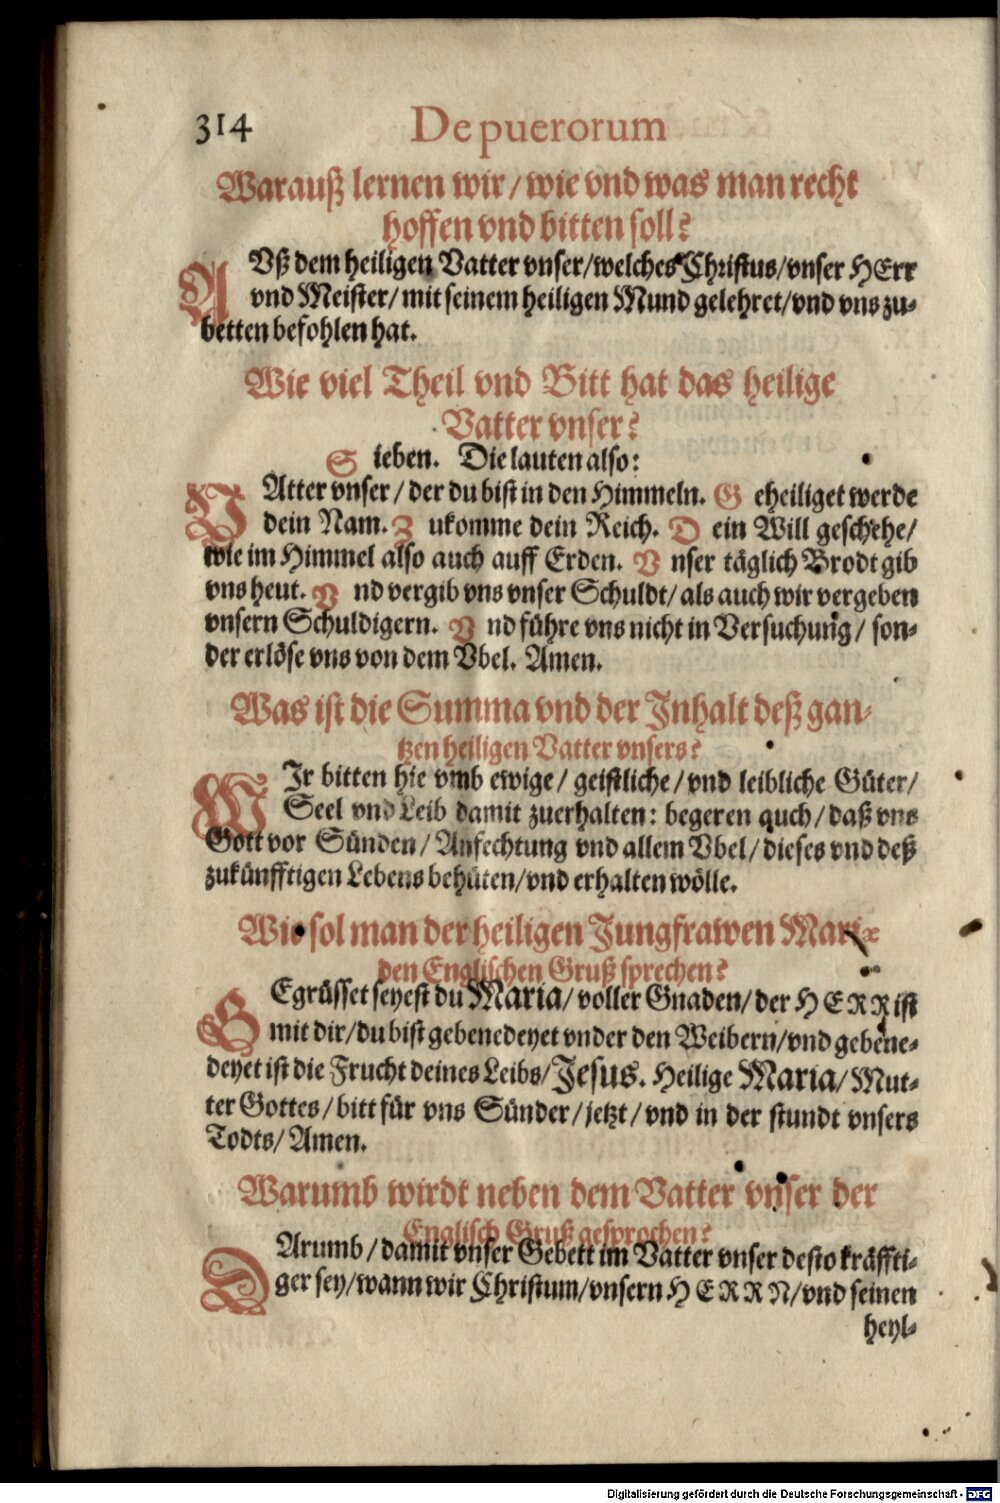 314 De puerorum
Warauß lernen wir / wie vnd was man recht
hoffen vnd bitten soll?
AVß dem heiligen Vatter vnser / welches Christus / vnser HErr
vnd Meister / mit seinem heiligen Mund gelehret / vnd vns zu-
betten befohlen hat.
Wie viel Theil vnd Bitt hat das heilige
Vatter vnser?
Sieben. Die lauten also:
VAtter vnser / der du bist in den Himmeln. Geheiliget werde
dein Nam. Zukomme dein Reich. Dein Will geschehe /
wie im Himmel also auch auff Erden. Vnser täglich Brodt gib
vns heut. Vnd vergib vns vnser Schuldt / als auch wir vergeben
vnsern Schuldigern. Vnd führe vns nicht in Versuchung / son-
der erlöse vns von dem Vbel. Amen.
Was ist die Summa vnd der Inhalt deß gan-
tzen heiligen Vatter vnsers?
WIr bitten hie vmb ewige / geistliche / vnd leibliche Güter /
Seel vnd Leib damit zuerhalten: begeren auch / daß vns
Gott vor Sünden / Anfechtung vnd allem Vbel / dieses vnd deß
zukünfftigen Lebens behüten / vnd erhalten wölle.
Wie sol man der heiligen Jungfrawen Mariæ
den Englischen Gruß sprechen?
GEgrüsset seyest du Maria / voller Gnaden / der HERR ist
mit dir / du bist gebenedeyet vnder den Weibern / vnd gebene-
deyet ist die Frucht deines Leibs / Jesus. Heilige Maria / Mut-
ter Gottes / bitt für vns Sünder / jetzt / vnd in der stundt vnsers
Todts / Amen.
Warumb wirdt neben dem Vatter vnser der
Englisch Gruß gesprochen?
DArumb / damit vnser Gebett im Vatter vnser desto kräffti-
ger sey / wann wir Christum / vnsern HERRN / vnd seinen
heyl-
Digitalisierung gefördert durch die Deutsche Forschungsgemeinschaft - DFG